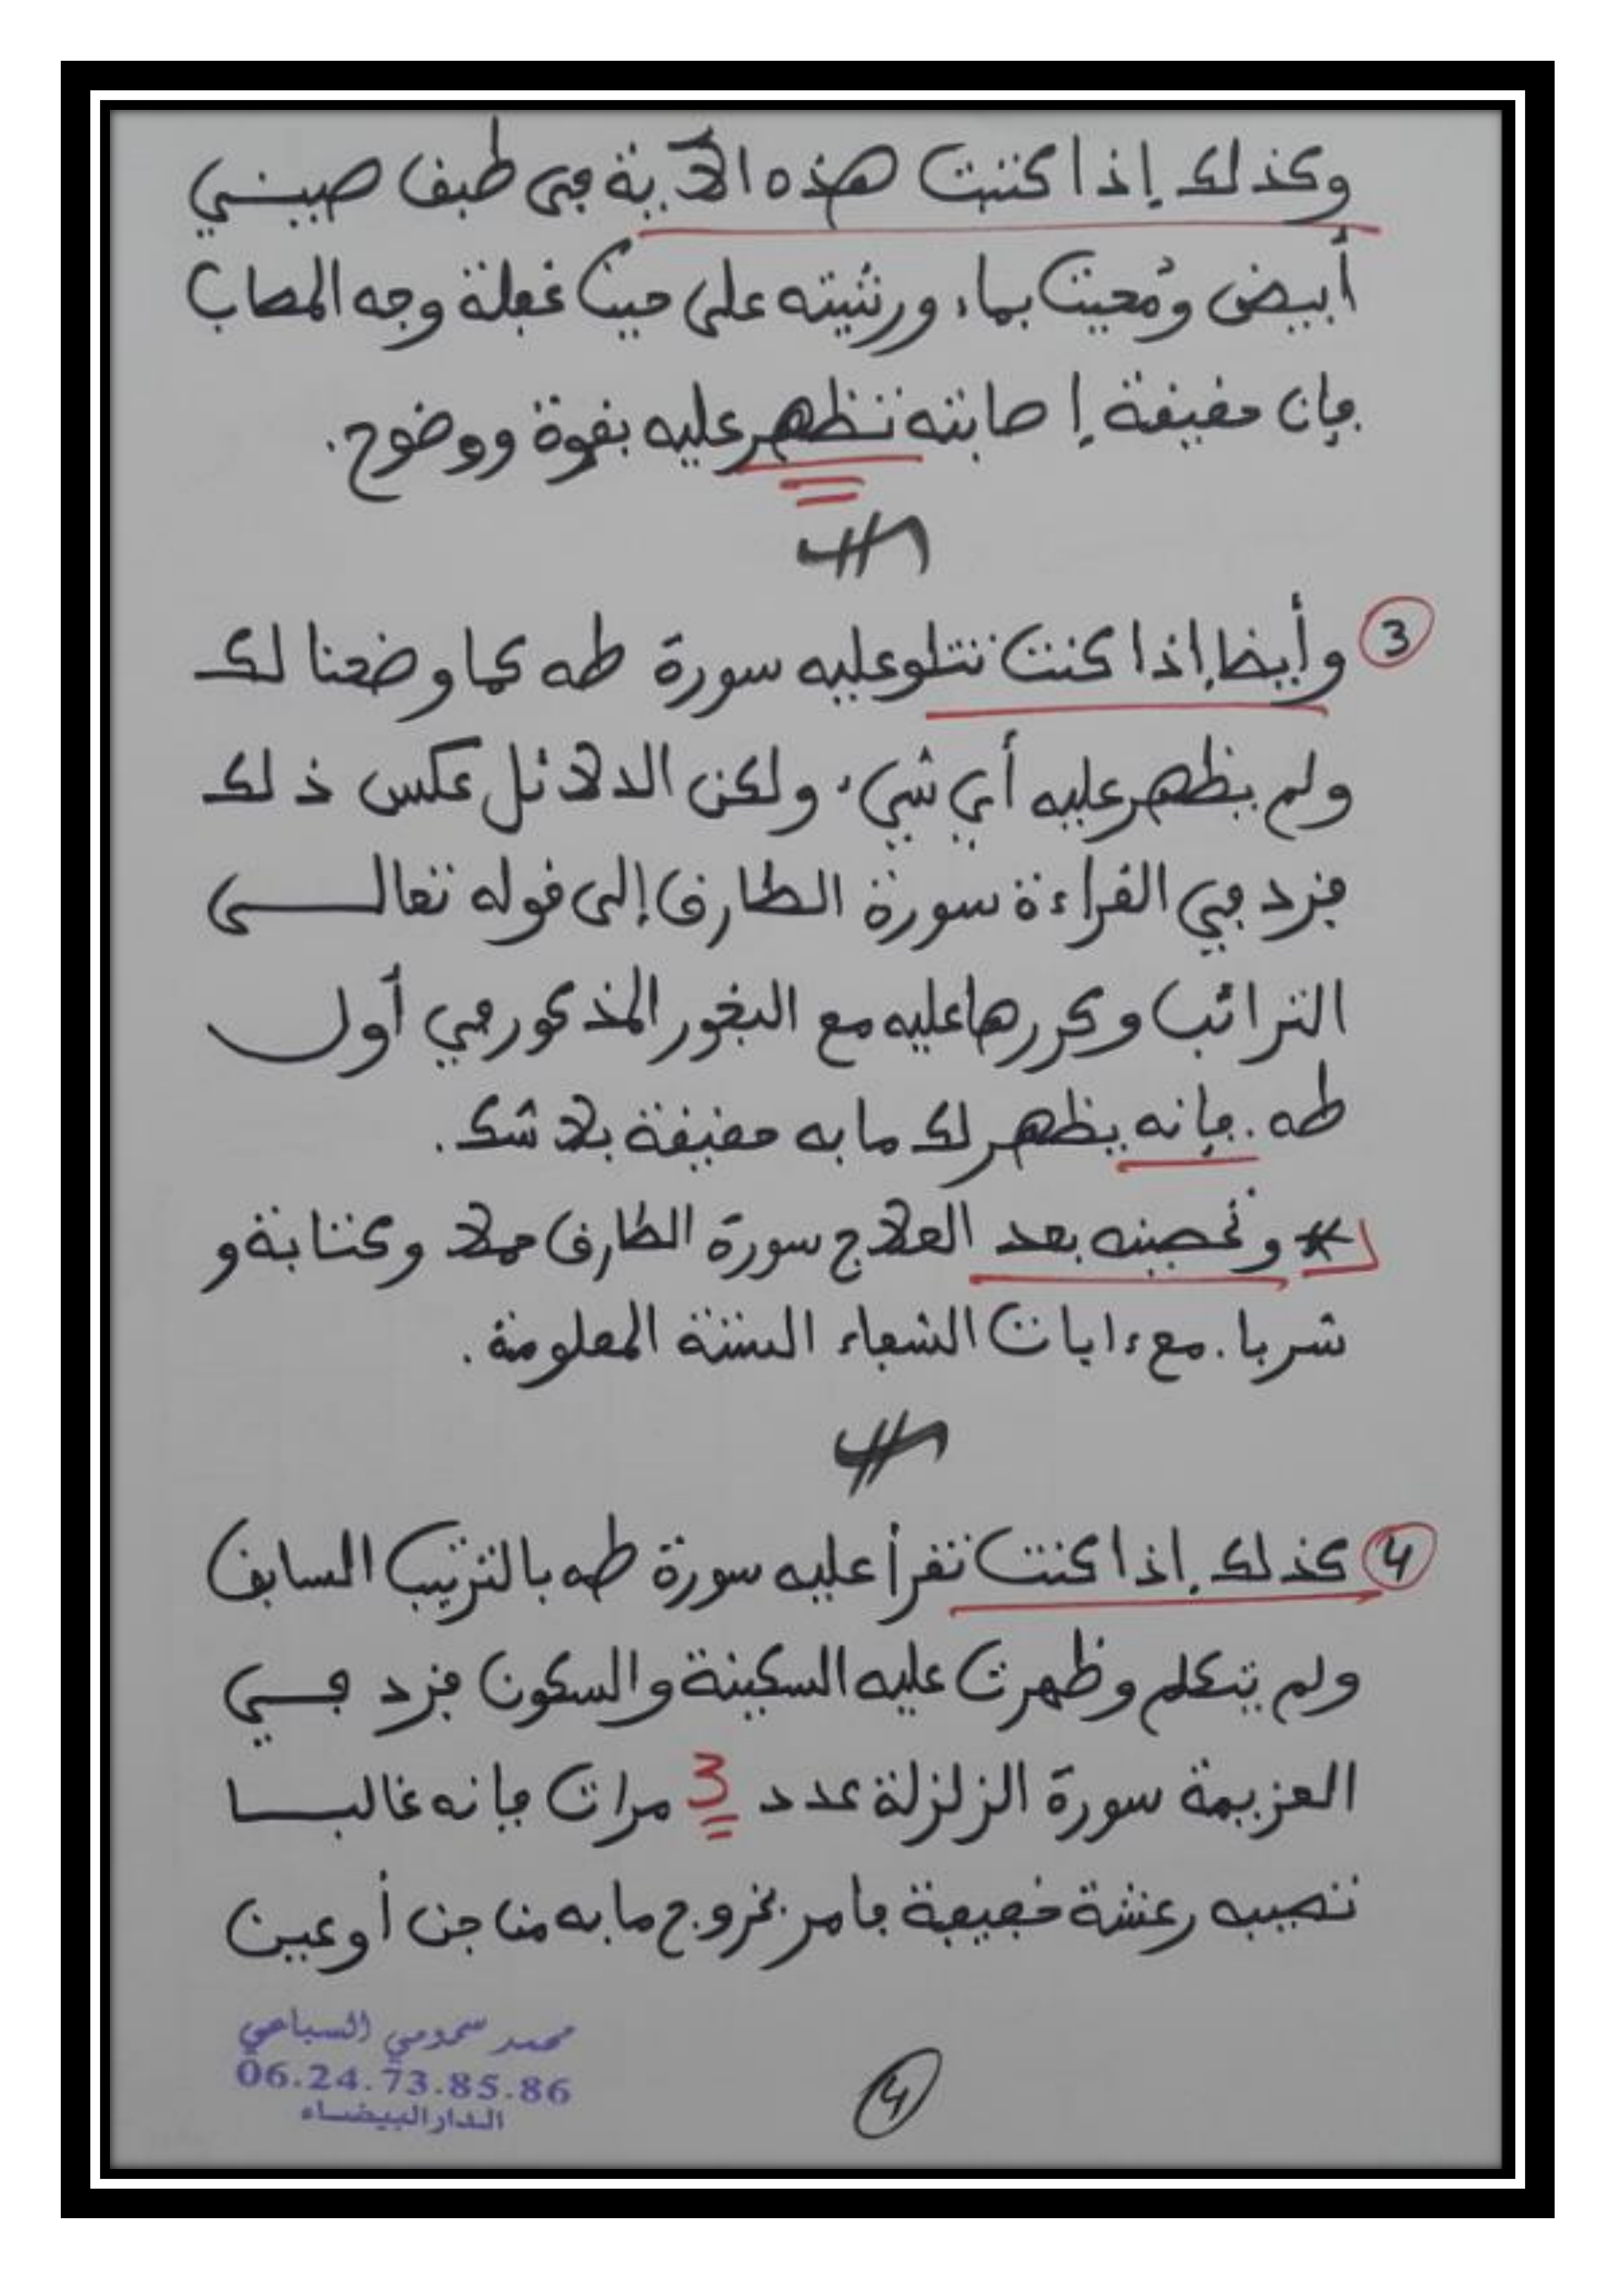 وكذلك إذا كتبت هذه الآية في طبق صيني
أبيض ومُحيت بماء ورشيته على حين غفلة وجه المصاب
فإن حقيقة إصابته تظهر عليه بقوة ووضوح.
3 وأيظا إذا كنت تتلو عليه سورة طه كما وضعنا لك
ولم يظهر عليه أي شيء ولكن الدلائل عكس ذلك
فزد في القراءة سورة الطارق إلى قوله تعالى
الترائب وكررها عليه مع البخور المذكور في أول
طه. فإنه يظهر لك ما به حقيقة بلا شك.
* وتحصينه بعد العلاج سورة الطارق حملا وكتابة و
شربا. مع ءايات الشفاء الستة المعلومة.
4 كذلك إذا كنت تقرأ عليه سورة طه بالترتيب السابق
ولم يتكلم وظهرت عليه السكينة والسكون فزد في
العزيمة سورة الزلزلة عدد 3 مرات فإنه غالبا
تصيبه رعشة خفيفة فامر بخروج ما به من جن أو عين
محمد سحومي السباعي
06.24.73.85.86
الدار البيضاء
4